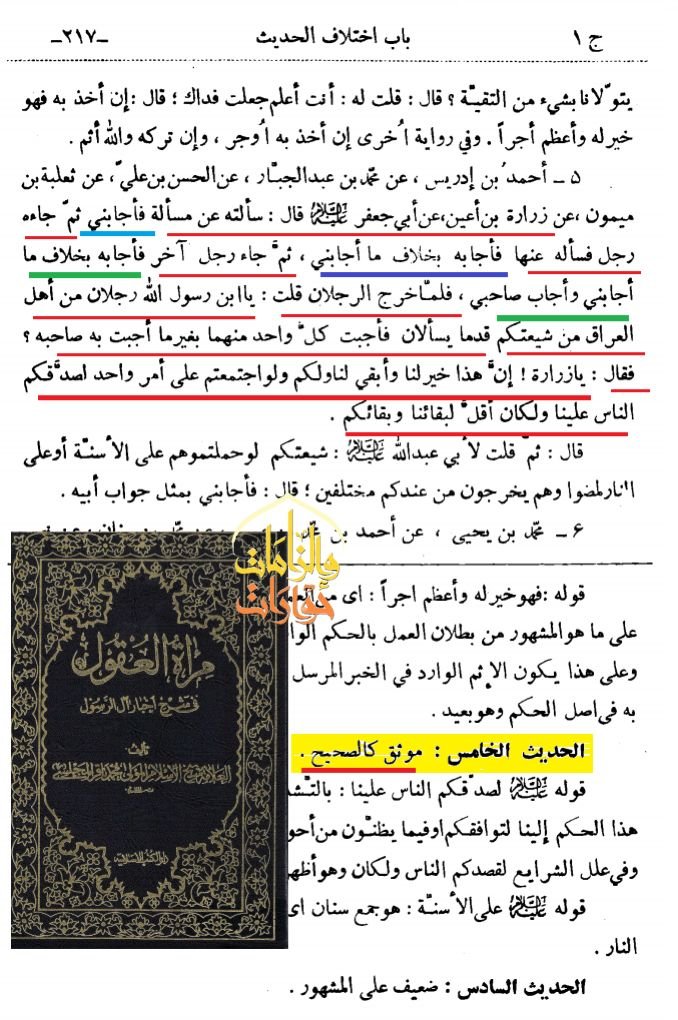 ج ١ باب اختلاف الحديث -٢١٧-
يتولّانا بشيء من التقيّة ؟ قال : قلت له : أنت أعلم جعلت فداك ؛ قال : إن أخذ به فهو
خير له وأعظم أجراً . وفي رواية اُخرى إن أخذ به اُوجر ، وإن تركه والله أثم .
٥ ـ أحمد بن إدريس ، عن محمّد بن عبد الجبّار ، عن الحسن بن عليّ ، عن ثعلبة بن
ميمون ، عن زرارة بن أعين ، عن أبي جعفر عليه السلام قال : سألته عن مسألة فأجابني ثمّ جاءه
رجل فسأله عنها فأجابه بخلاف ما أجابني ، ثمَّ جاء رجل آخر فأجابه بخلاف ما
أجابني وأجاب صاحبي ، فلمّا خرج الرجلان قلت : يا ابن رسول الله رجلان من أهل
العراق من شيعتكم قدما يسألان فأجبت كلَّ واحد منهما بغير ما أجبت به صاحبه ؟
فقال : يا زرارة ! إنَّ هذا خير لنا وأبقي لنا ولكم ولو اجتمعتم على أمر واحد لصدَّقكم
الناس علينا ولكان أقلَّ لبقائنا وبقائكم .
قال : ثمّ قلت لأبي عبدالله عليه السلام : شيعتكم لو حملتموهم على الأسنّة أو على
النار لمضوا وهم يخرجون من عندكم مختلفين ؛ قال : فأجابني بمثل جواب أبيه .
٦ ـ محمّد بن يحيى ، عن أحمد بن
حوارات والزامات
قوله : فهو خير له وأعظم اجراً : اى
على ما هو المشهور من بطلان العمل بالحكم
وعلى هذا يكون الإثم الوارد في الخبر المرسل
به في اصل الحكم وهو بعيد .
الحديث الخامس : موثق كالصحيح .
قوله عليه السلام لصدّقكم الناس علينا :
هذا الحكم إلينا لتوافقكم او فيما يظنّون من
وفي علل الشرايع لقصدكم الناس ولكان وهو
قوله عليه السلام على الأسنّة : هو جمع سنان اى
النار .
الحديث السادس : ضعيف على المشهور .
مرآة العقول
في شرح أخبار آل الرسول
تأليف
دار الكتب الاسلامية